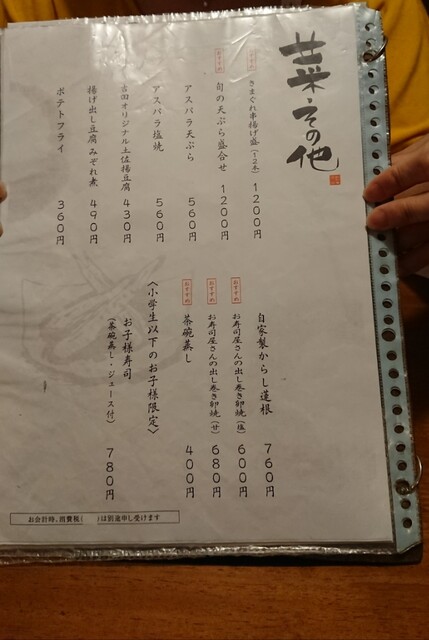 菜・その他
おすすめ
きまぐれ串揚げ盛(12本) 1200円
おすすめ
旬の天ぷら盛合せ 1200円
アスパラ天ぷら 560円
アスパラ塩焼 560円
吉田オリジナル土佐揚豆腐 430円
揚げ出し豆腐みぞれ煮 490円
ポテトフライ 360円
自家製からし蓮根 760円
おすすめ
お寿司屋さんの出し巻き卵焼(塩) 600円
おすすめ
お寿司屋さんの出し巻き卵焼(甘) 680円
おすすめ
茶碗蒸し 400円
〈小学生以下のお子様限定〉
お子様寿司
(茶碗蒸し・ジュース付) 780円
お会計時、消費税( )は別途申し受けます